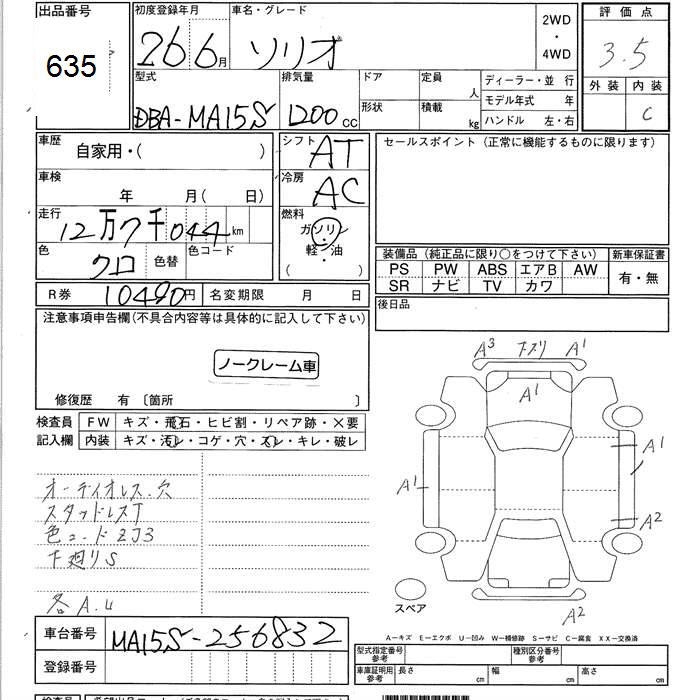 出品番号 初度登録年月 車名・グレード 評価点
635 26 6月 ソリオ 2WD・4WD 3.5
外装 内装
型式 排気量 ドア 定員 人 ディーラー・並 行
C
モデル年式 年
DBA-MA15S 1200cc 形状 積載 kg ハンドル 左・右
車歴 自家用・( ) シフト AT セールスポイント(正常に機能するものに限ります)
車検 年 月( 日) 冷房 AC
走行 12万7千044km 燃料 ガソリン
軽・油
( )
色 クロ 色替 色コード
装備品(純正品に限り○をつけて下さい) 新車保証書
PS PW ABS エアB AW 有・無
SR ナビ TV カワ
R券 10490円 名変期限 月 日
後日品
注意事項申告欄(不具合内容等は具体的に記入して下さい)
ノークレーム車
修復歴 有 〔箇所 〕
検査員 FW キズ・飛石・ヒビ割・リペア跡・×要
記入欄 内装 キズ・汚レ・コゲ・穴・スレ・キレ・破レ
A3 下スリ A1
A1
A1
A1
A2
A2
オーディオレス.穴
スタッドレスT
色コードZJ3
下廻りS
各A.U
スペア
A-キズ E-エクボ U-凹み W-補修跡 S-サビ C-腐食 XX-交換済
車台番号 MA15S-256832
登録番号
型式指定番号 参考 種別区分番号 参考
車庫証明用 参考 長さ cm 幅 cm 高さ cm